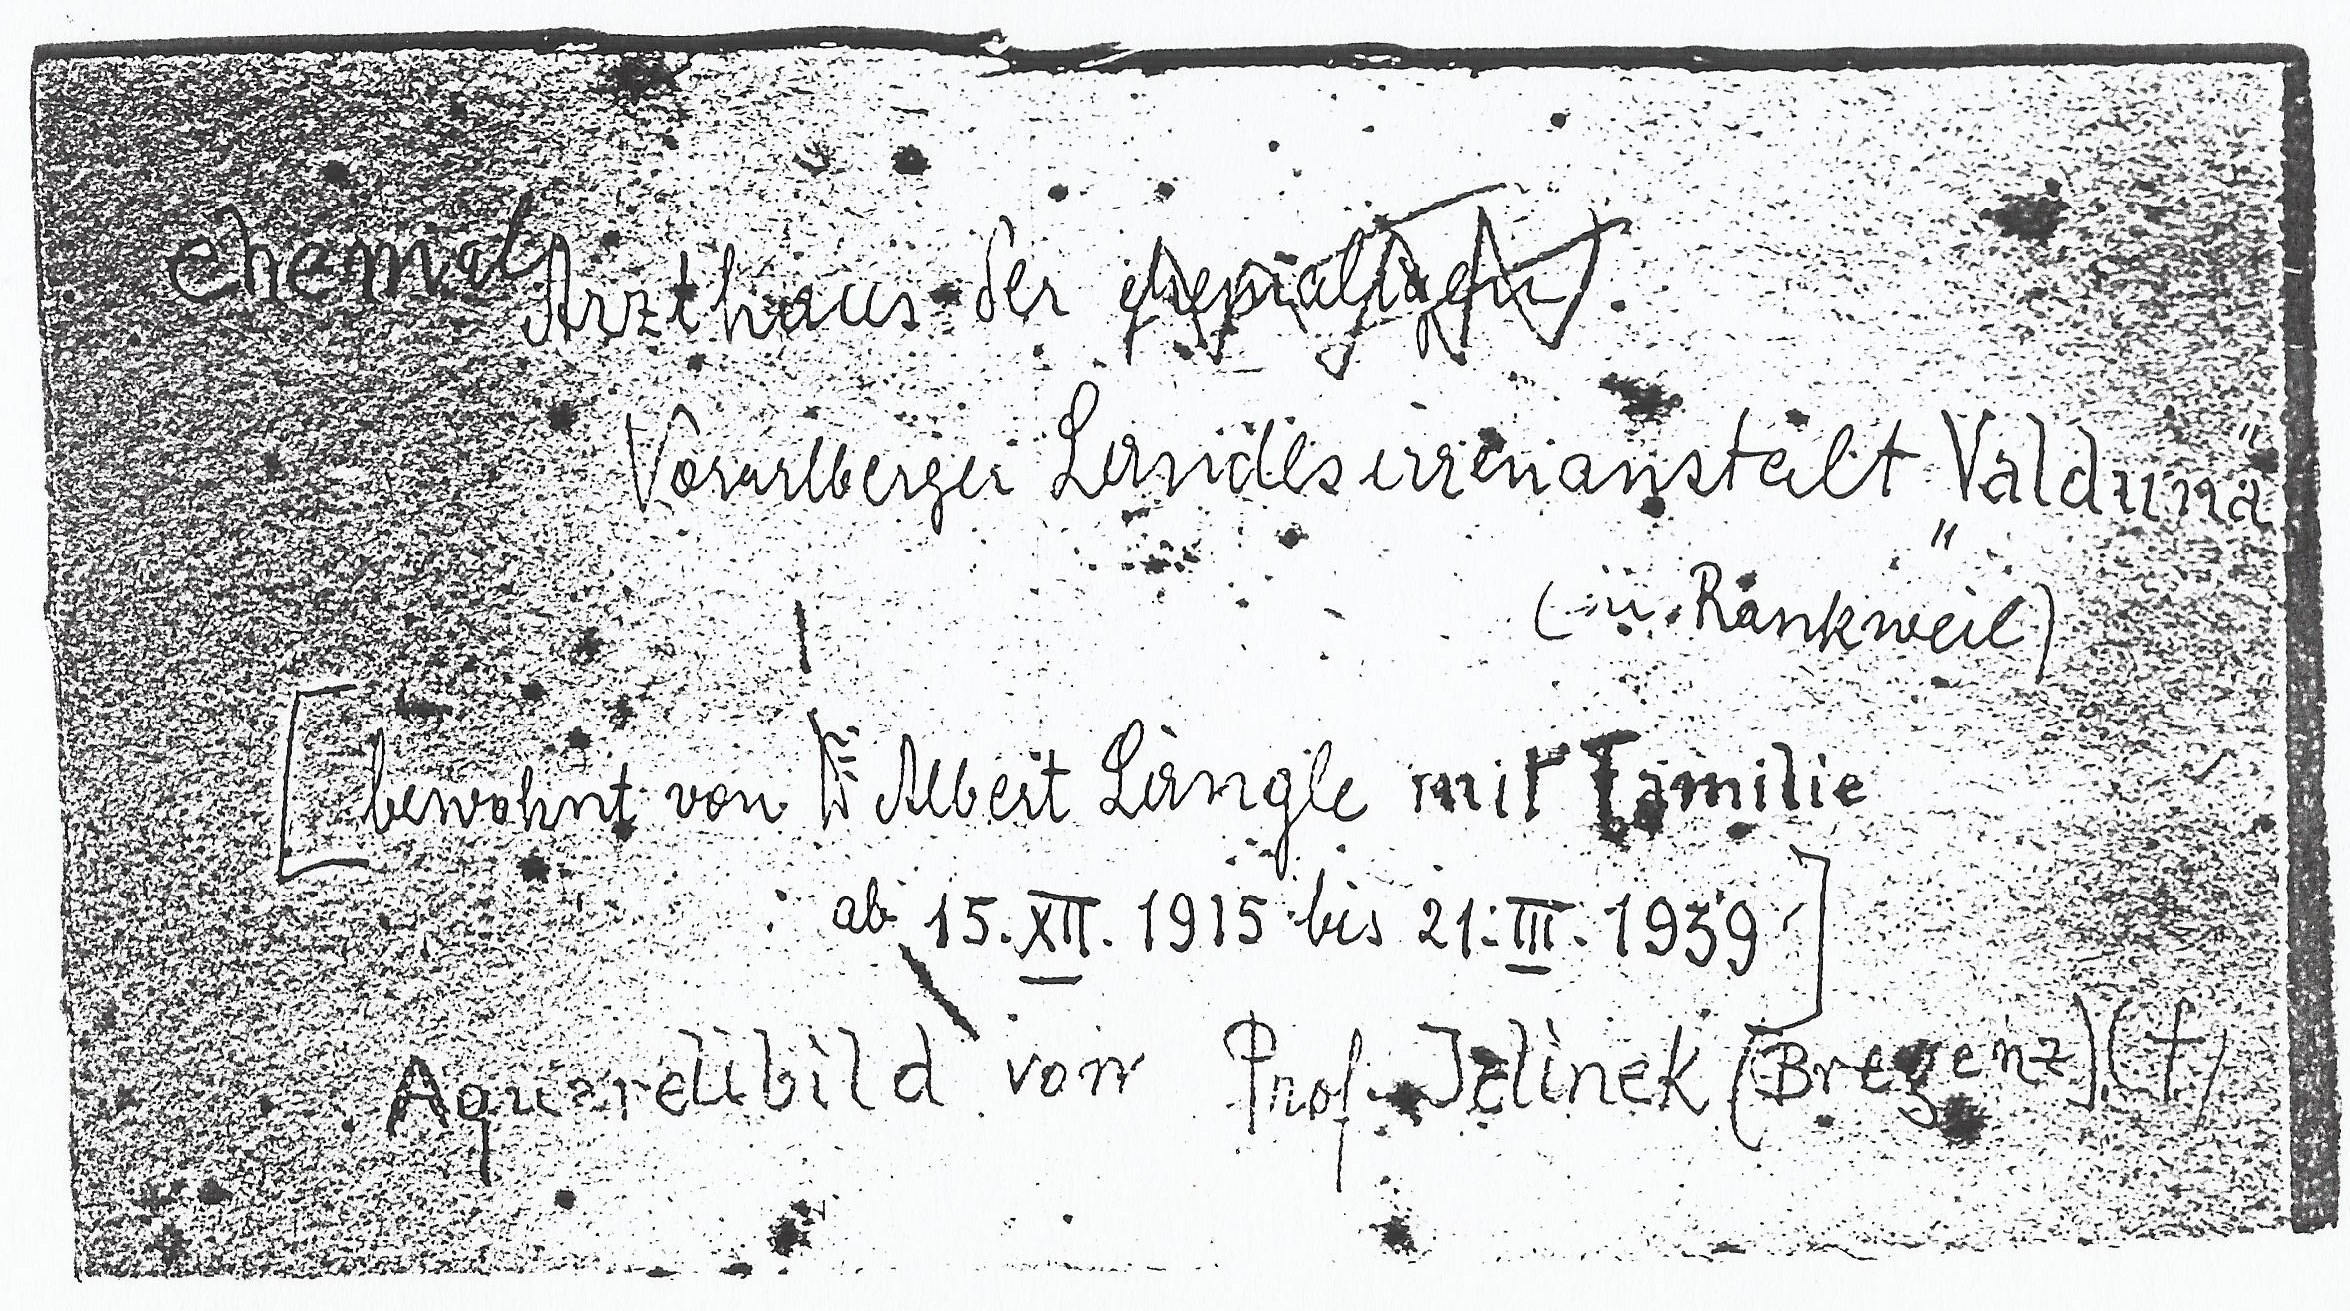 ehemal Arzthaus der ehemaligen
Vorarlberger Landesirrenanstalt "Valduna"
(in Rankweil)
[bewohnt von Dr Albert Längle mit Familie
ab 15. XII. 1915 bis 21. III. 1939]
Aquarellbild von Prof. Jelinek (Bregenz) (†)